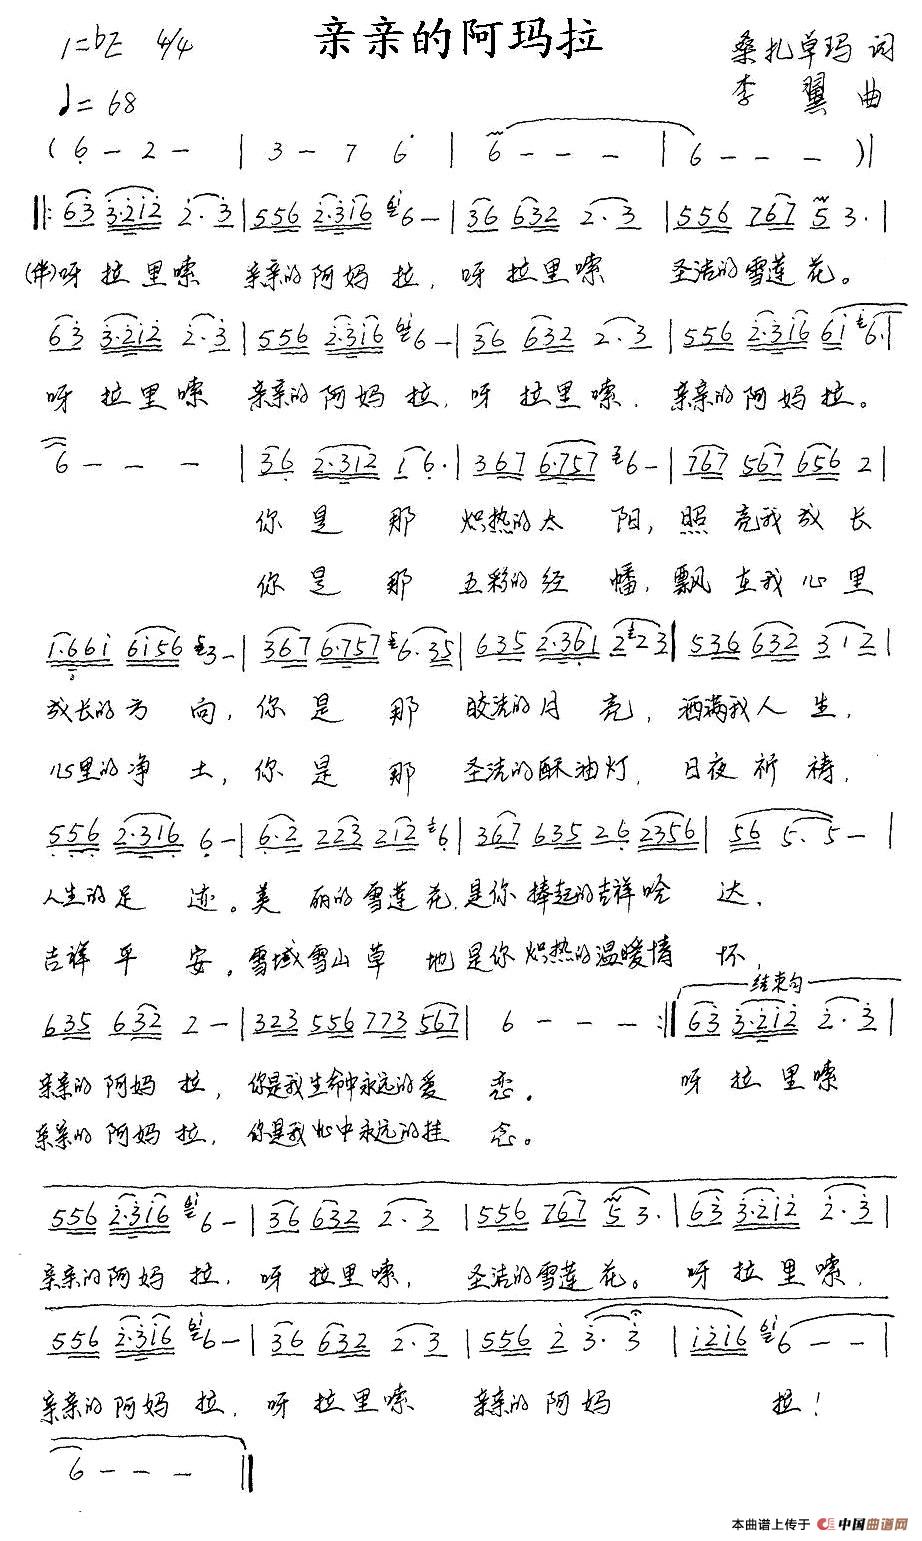 亲亲的阿玛拉
1=bE 4/4
桑扎草玛 词
李翼 曲
♩=68
( 6 - 2 - | 3 - 7 6 | 6 - - - | 6 - - - )|
‖: 63 3·212 2·3 | 556 2·316 6 - | 36 632 2·3 | 556 767 5 3· |
(伴)呀拉里嗦 亲亲的阿妈拉，呀拉里嗦 圣洁的雪莲花。
63 3·212 2·3 | 556 2·316 6 - | 36 632 2·3 | 556 2·316 61 6· |
呀拉里嗦 亲亲的阿妈拉，呀拉里嗦，亲亲的阿妈拉。
6 - - - | 36 2·312 1 6· | 367 6·757 6 - | 767 567 656 2 |
你是那 炽热的太阳，照亮我成长
你是那 五彩的经幡，飘在我心里
1·661 6156 3 - | 367 6·757 6·35 | 635 2·361 2 23 | 536 632 312 |
成长的方向，你是那 皎洁的月亮，洒满我人生，
心里的净土，你是那 圣洁的酥油灯，日夜祈祷，
556 2·316 6 - | 6·2 223 212 6 | 367 635 26 2356 | 56 5·5 - |
人生的足迹。美丽的雪莲花，是你捧起的吉祥哈达，
吉祥平安。雪域雪山草地是你炽热的温暖情怀，
结束句
635 632 2 - | 323 556 773 567 | 6 - - - :‖ 63 3·212 2·3 |
亲亲的阿妈拉，你是我生命中永远的爱恋。 呀拉里嗦
亲亲的阿妈拉，你是我心中永远的挂念。
556 2·316 6 - | 36 632 2·3 | 556 767 5 3· | 63 3·212 2·3 |
亲亲的阿妈拉，呀拉里嗦，圣洁的雪莲花。呀拉里嗦，
556 2·316 6 - | 36 632 2·3 | 556 2 3·3 | 1216 6 - - |
亲亲的阿妈拉，呀拉里嗦 亲亲的阿妈 拉！
6 - - - ‖
本曲谱上传于 中国曲谱网